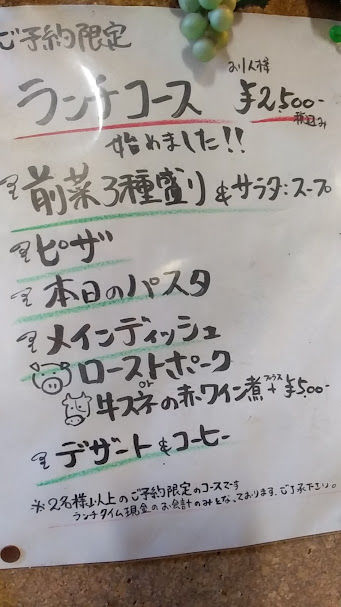 ご予約限定
お1人様
ランチコース ¥2,500-
税込み
始めました!!
前菜3種盛り & サラダ:スープ
ピザ
本日のパスタ
メインディッシュ
ローストポーク
or
牛スネの赤ワイン煮 +プラス ¥500-
デザート & コーヒー
※2名様以上のご予約限定のコースです
ランチタイム現金のお会計のみとなっております。ご了承下さい。